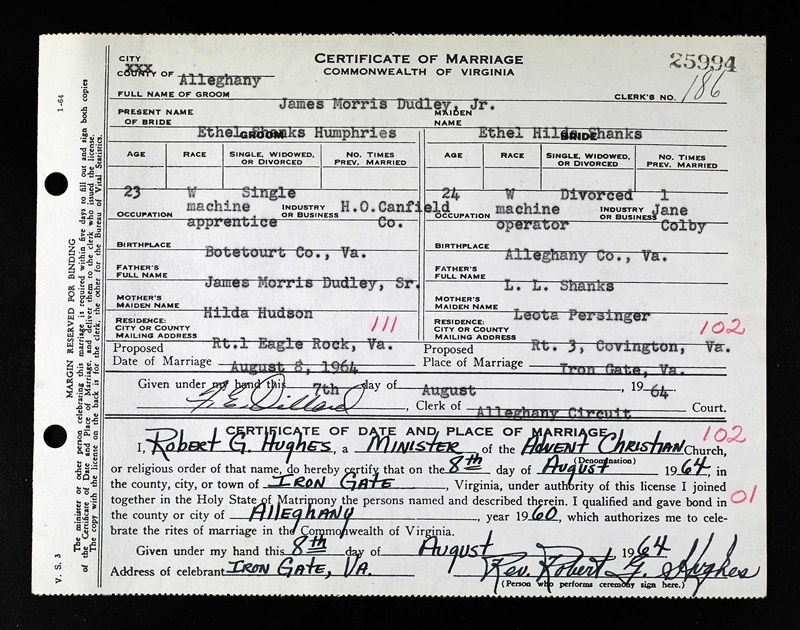 CERTIFICATE OF MARRIAGE
COMMONWEALTH OF VIRGINIA
25994
CITY
XXX
COUNTY OF Alleghany
CLERK'S NO. 186
FULL NAME OF GROOM James Morris Dudley, Jr.
PRESENT NAME OF BRIDE Ethel Shanks Humphries
MAIDEN NAME Ethel Hilda Shanks
GROOM
BRIDE
AGE RACE SINGLE, WIDOWED, OR DIVORCED NO. TIMES PREV. MARRIED
AGE RACE SINGLE, WIDOWED, OR DIVORCED NO. TIMES PREV. MARRIED
23 W Single
24 W Divorced 1
OCCUPATION machine apprentice INDUSTRY OR BUSINESS H.O.Canfield Co.
OCCUPATION machine operator INDUSTRY OR BUSINESS Jane Colby
BIRTHPLACE Botetourt Co., Va.
BIRTHPLACE Alleghany Co., Va.
FATHER'S FULL NAME James Morris Dudley, Sr.
FATHER'S FULL NAME L. L. Shanks
MOTHER'S MAIDEN NAME Hilda Hudson
MOTHER'S MAIDEN NAME Leota Persinger
RESIDENCE: CITY OR COUNTY MAILING ADDRESS Rt.1 Eagle Rock, Va. 111
RESIDENCE: CITY OR COUNTY MAILING ADDRESS Rt. 3, Covington, Va. 102
Proposed Date of Marriage August 8, 1964
Proposed Place of Marriage Iron Gate, Va.
Given under my hand this 7th day of August, 19 64
F. E. Dillard, Clerk of Alleghany Circuit Court.
CERTIFICATE OF DATE AND PLACE OF MARRIAGE 102
I, ROBERT G. HUGHES, a MINISTER of the ADVENT CHRISTIAN Church,
(Denomination)
or religious order of that name, do hereby certify that on the 8th day of August 1964, in
the county, city, or town of IRON GATE, Virginia, under authority of this license I joined
together in the Holy State of Matrimony the persons named and described therein. I qualified and gave bond in 01
the county or city of ALLEGHANY, year 1960, which authorizes me to cele-
brate the rites of marriage in the Commonwealth of Virginia.
Given under my hand this 8th day of August 1964.
Address of celebrant IRON GATE, VA. Rev. Robert G. Hughes
(Person who performs ceremony sign here.)
V. S. 3
1-64
MARGIN RESERVED FOR BINDING
The minister or other person celebrating this marriage is required within five days to fill out and sign both copies
of the Certificate of Date and Place of Marriage, and deliver them to the clerk who issued the license.
The copy with the license on the back is for the clerk, the other for the Bureau of Vital Statistics.